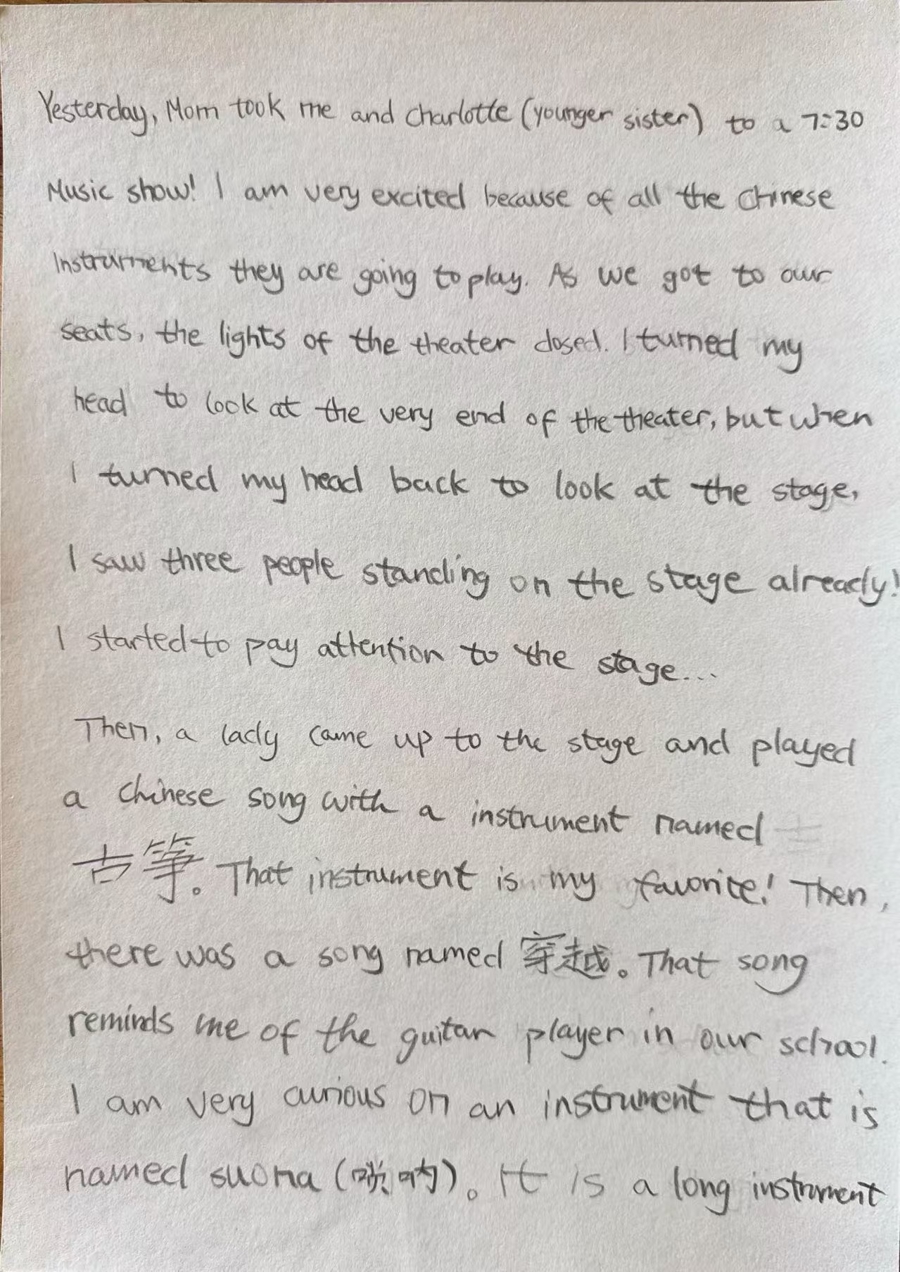 Yesterday, Mom took me and Charlotte (younger sister) to a 7:30
Music show! I am very excited because of all the Chinese
Instruments they are going to play. As we got to our
seats, the lights of the theater closed. I turned my
head to look at the very end of the theater, but when
I turned my head back to look at the stage,
I saw three people standing on the stage already!
I started to pay attention to the stage...
Then, a lady came up to the stage and played
a Chinese song with a instrument named
古筝。That instrument is my favorite! Then,
there was a song named 穿越。That song
reminds me of the guitar player in our school.
I am very curious on an instrument that is
named suona (唢呐)。It is a long instrument